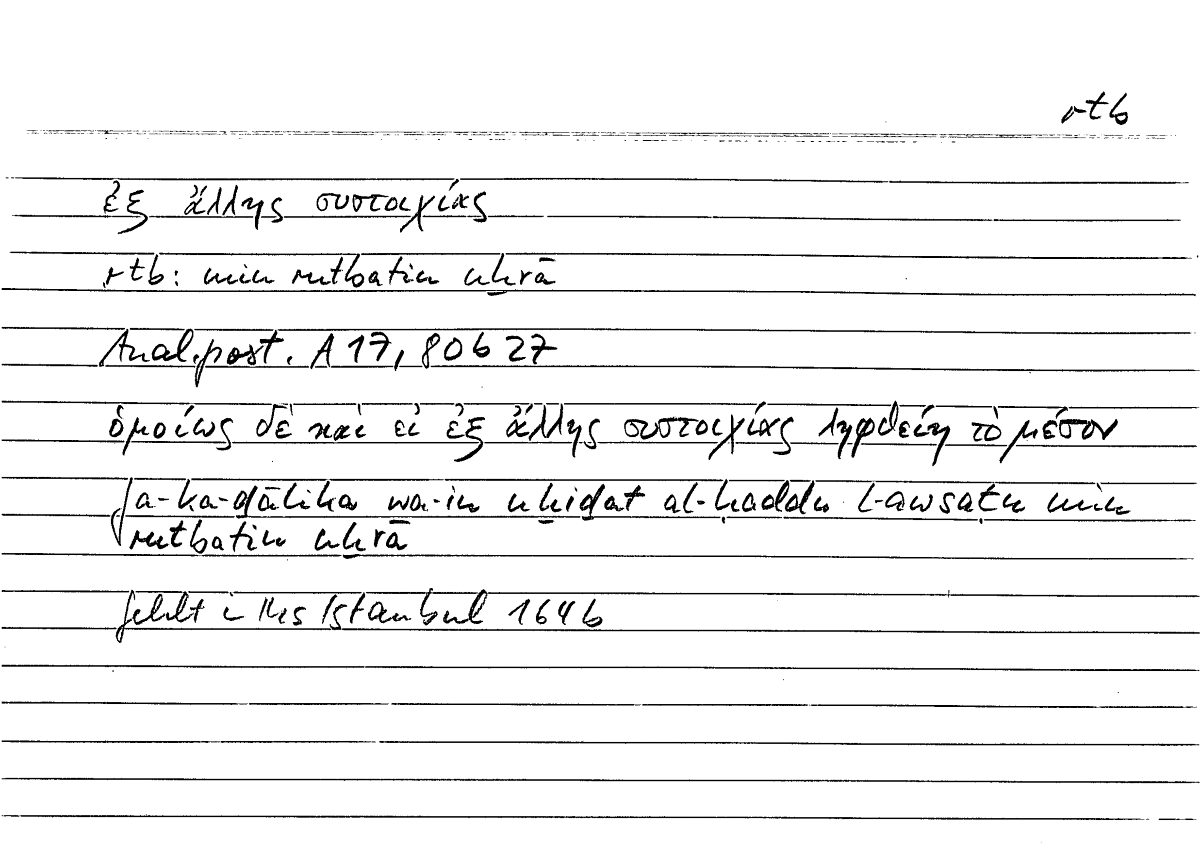 rtb
ἐξ ἄλλης συστοιχίας
rtb: min rutbatin uḫrā
Anal. post. A 17, 80 b 27
ὁμοίως δὲ καὶ εἰ ἐξ ἄλλης συστοιχίας ληφθείη τὸ μέσον
fa-ka-ḏālika wa-in uḫiḏat al-ḥaddu l-awsaṭu min
rutbatin uḫrā
fehlt i Hs Istanbul 164b